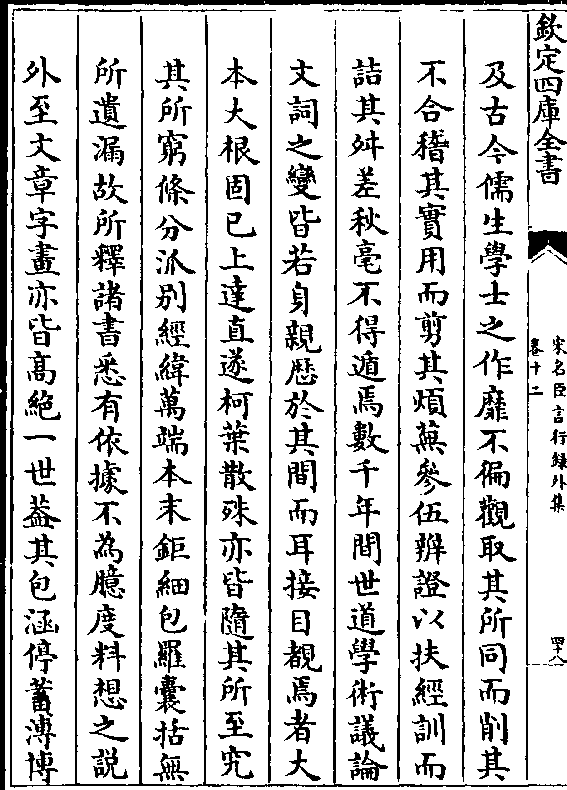 欽定四庫全書
宋名臣言行録外集
卷十二
四十八
及古今儒生學士之作靡不徧觀取其所同而削其
不合稽其實用而剪其煩蕪參伍辨證以扶經訓而
詰其舛差秋毫不得遁焉數千年間世道學術議論
文詞之變皆若身親歴於其間而耳接目覩焉者大
本大根固已上達直遂柯葉散殊亦皆隨其所至究
其所窮條分派别經緯萬端本末鉅細包羅囊括無
所遺漏故所釋諸書悉有依據不為臆度料想之説
外至文章字畫亦皆髙絶一世葢其包涵停蓄溥博